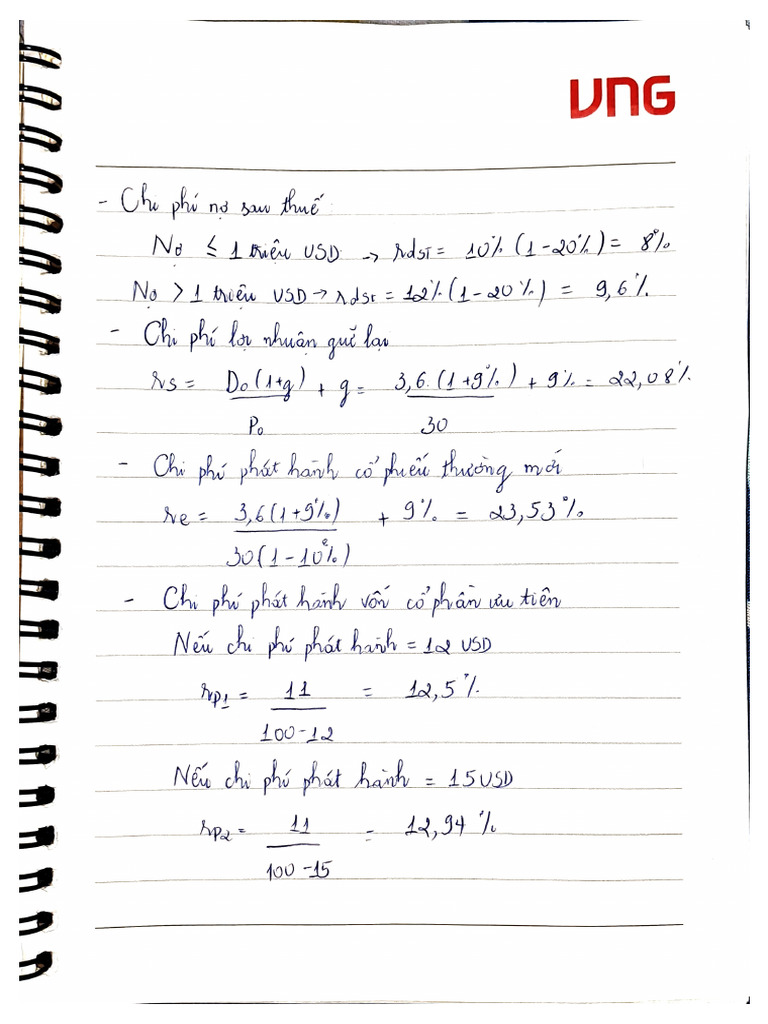 VNG
- Chi phí nợ sau thuế
Nợ ≤ 1 triệu USD → rdST = 10% (1-20%) = 8%
Nợ > 1 triệu USD → rdST = 12% (1-20%) = 9,6%
- Chi phí lợi nhuận giữ lại
rs = D₀(1+g)/P₀ + g = 3,6.(1+9%)/30 + 9% = 22,08%
- Chi phí phát hành cổ phiếu thường mới
re = 3,6(1+9%)/30(1-10%) + 9% = 23,53%
- Chi phí phát hành vốn cổ phần ưu tiên
Nếu chi phí phát hành = 12 USD
rp₁ = 11/100-12 = 12,5%
Nếu chi phí phát hành = 15 USD
rp₂ = 11/100-15 = 12,94%